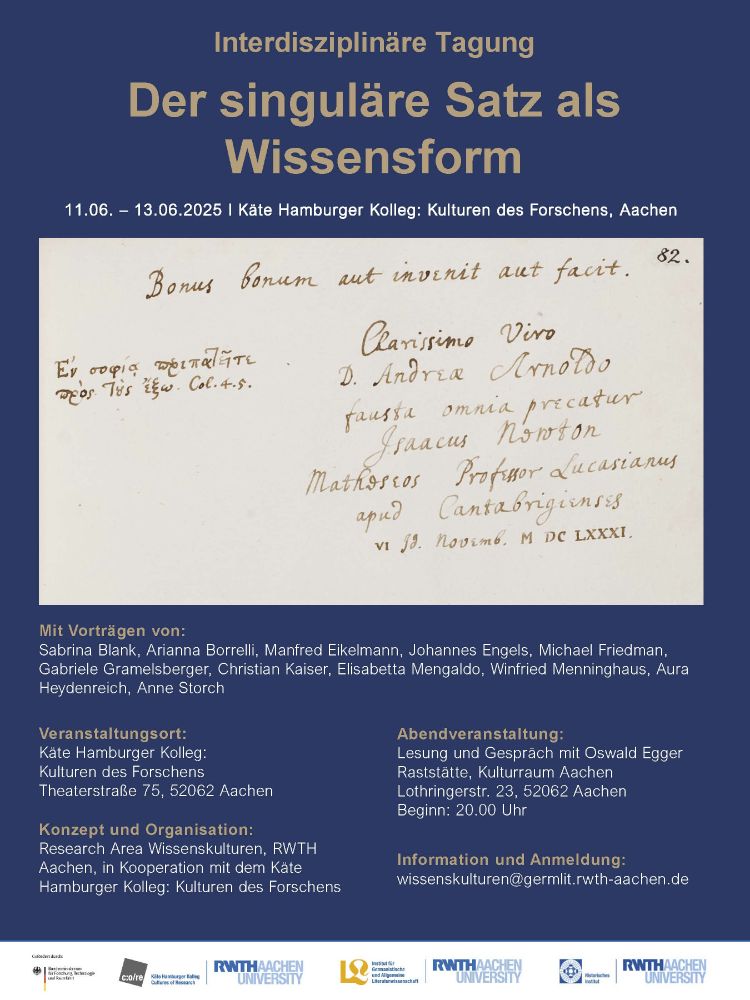 Interdisziplinäre Tagung
Der singuläre Satz als
Wissensform
11.06. – 13.06.2025 I Käte Hamburger Kolleg: Kulturen des Forschens, Aachen
82.
Bonus bonum aut invenit aut facit.
Ἐν σοφίᾳ πριπατεῖτε
πρὸς τοὺς ἔξω. Col. 4. 5.
Clarissimo Viro
D. Andreæ Arnoldo
fausta omnia precatur
Isaacus Newton
Matheseos Professor Lucasianus
apud Cantabrigienses
VI Id. Novemb. M DC LXXXI.
Mit Vorträgen von:
Sabrina Blank, Arianna Borrelli, Manfred Eikelmann, Johannes Engels, Michael Friedman,
Gabriele Gramelsberger, Christian Kaiser, Elisabetta Mengaldo, Winfried Menninghaus, Aura
Heydenreich, Anne Storch
Veranstaltungsort:
Käte Hamburger Kolleg:
Kulturen des Forschens
Theaterstraße 75, 52062 Aachen
Konzept und Organisation:
Research Area Wissenskulturen, RWTH
Aachen, in Kooperation mit dem Käte
Hamburger Kolleg: Kulturen des Forschens
Abendveranstaltung:
Lesung und Gespräch mit Oswald Egger
Raststätte, Kulturraum Aachen
Lothringerstr. 23, 52062 Aachen
Beginn: 20.00 Uhr
Information und Anmeldung:
wissenskulturen@germlit.rwth-aachen.de
Gefördert durch:
Bundesministerium
für Forschung, Technologie
und Raumfahrt
c:o/re
Käte Hamburger Kolleg
Cultures of Research
RWTH AACHEN
UNIVERSITY
Institut für
Germanistische
und Allgemeine
Literaturwissenschaft
RWTH AACHEN
UNIVERSITY
Historisches
Institut
RWTH AACHEN
UNIVERSITY